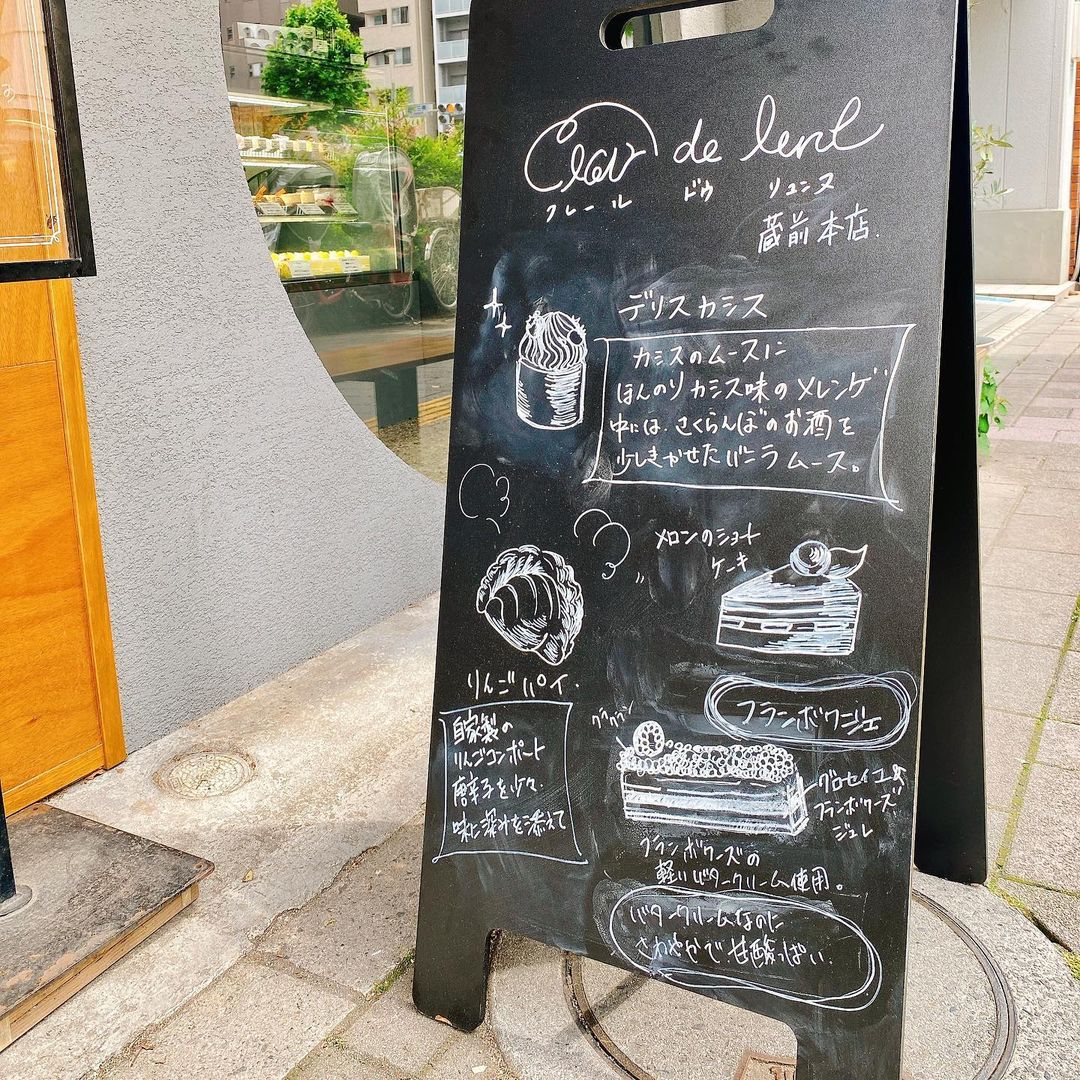 Clair de lune
クレール ドゥ リュンヌ
蔵前本店.
デリスカシス
カシスのムースに
ほんのりカシス味のメレンゲ
中には、さくらんぼのお酒を
少しきかせたバニラムース。
メロンのショート
ケーキ
りんごパイ.
自家製の
りんごコンポート
唐辛子を少々.
味に深みを添えて
フランボワジエ
グロセイユ&
フランボワーズ
ジュレ
フランボワーズの
軽いバタークリーム使用。
バタークリームなのに
さわやかで甘酸っぱい.